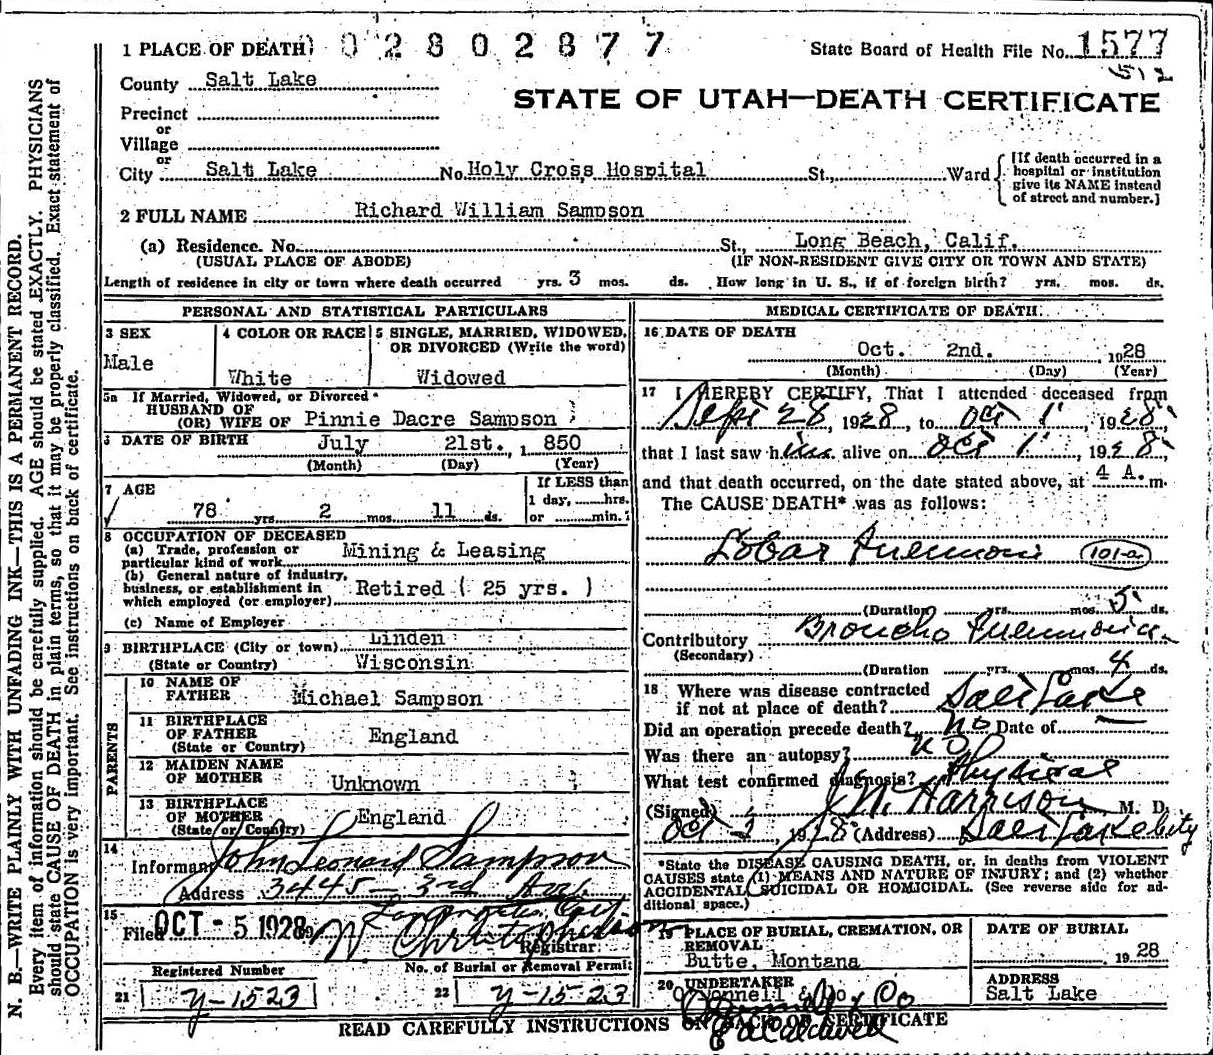 1 PLACE OF DEATH) 02802877 State Board of Health File No. 1577
512
County Salt Lake
STATE OF UTAH—DEATH CERTIFICATE
Precinct
or
Village
or
City Salt Lake No. Holy Cross Hospital St., Ward
[If death occurred in a
hospital or institution
give its NAME instead
of street and number.]
2 FULL NAME Richard William Sampson
(a) Residence. No. St., Long Beach, Calif.
(USUAL PLACE OF ABODE) (IF NON-RESIDENT GIVE CITY OR TOWN AND STATE)
Length of residence in city or town where death occurred yrs. 3 mos. ds. How long in U. S., if of foreign birth? yrs. mos. ds.
PERSONAL AND STATISTICAL PARTICULARS
3 SEX
Male
4 COLOR OR RACE
White
5 SINGLE, MARRIED, WIDOWED,
OR DIVORCED (Write the word)
Widowed
5a If Married, Widowed, or Divorced
HUSBAND OF
(OR) WIFE OF Pinnie Dacre Sampson
6 DATE OF BIRTH July 21st. 1 850
(Month) (Day) (Year)
7 AGE
78 yrs. 2 mos. 11 ds.
If LESS than
1 day, hrs.
or min.
8 OCCUPATION OF DECEASED
(a) Trade, profession or
particular kind of work Mining & Leasing
(b) General nature of industry,
business, or establishment in
which employed (or employer) Retired ( 25 yrs. )
(c) Name of Employer
9 BIRTHPLACE (City or town) Linden
(State or Country) Wisconsin
PARENTS
10 NAME OF
FATHER Michael Sampson
11 BIRTHPLACE
OF FATHER
(State or Country) England
12 MAIDEN NAME
OF MOTHER Unknown
13 BIRTHPLACE
OF MOTHER
(State or Country) England
14
Informant John Leonard Sampson
Address 3445 - 3rd Ave.
Los Angeles, Cal
15
Filed OCT - 5 1928 W Christopherson
Registrar
Registered Number
21 Y-1523
No. of Burial or Removal Permit
22 Y-1523
MEDICAL CERTIFICATE OF DEATH
16 DATE OF DEATH
Oct. 2nd. 1928
(Month) (Day) (Year)
17 I HEREBY CERTIFY, That I attended deceased from
Sept 28, 1928, to Oct 1, 1928,
that I last saw him alive on Oct 1, 1928,
and that death occurred, on the date stated above, at 4 A. m.
The CAUSE DEATH* was as follows:
Lobar Pneumonia 101-a
(Duration yrs. mos. 5 ds.
Contributory Broncho Pneumonia
(Secondary)
(Duration yrs. mos. 4 ds.
18 Where was disease contracted
if not at place of death? Salt Lake
Did an operation precede death? no Date of —
Was there an autopsy? no
What test confirmed diagnosis? Physical
(Signed) J. W. Harrison M. D.
Oct 2, 1928 (Address) Salt Lake City
*State the DISEASE CAUSING DEATH, or, in deaths from VIOLENT
CAUSES state (1) MEANS AND NATURE OF INJURY; and (2) whether
ACCIDENTAL, SUICIDAL OR HOMICIDAL. (See reverse side for ad-
ditional space.)
19 PLACE OF BURIAL, CREMATION, OR
REMOVAL
Butte, Montana
DATE OF BURIAL
1928
20 UNDERTAKER
O'Donnell & Co
ADDRESS
Salt Lake
READ CAREFULLY INSTRUCTIONS ON BACK OF CERTIFICATE
N. B.—WRITE PLAINLY WITH UNFADING INK—THIS IS A PERMANENT RECORD.
Every item of information should be carefully supplied. AGE should be stated EXACTLY. PHYSICIANS
should state CAUSE OF DEATH in plain terms, so that it may be properly classified. Exact statement of
OCCUPATION is very important. See instructions on back of certificate.